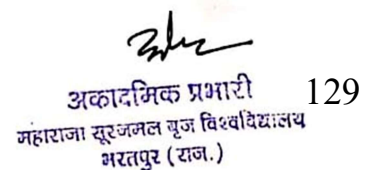 अकादमिक प्रभारी 129
महाराजा सूरजमल बृज विश्वविद्यालय
भरतपुर (राज.)